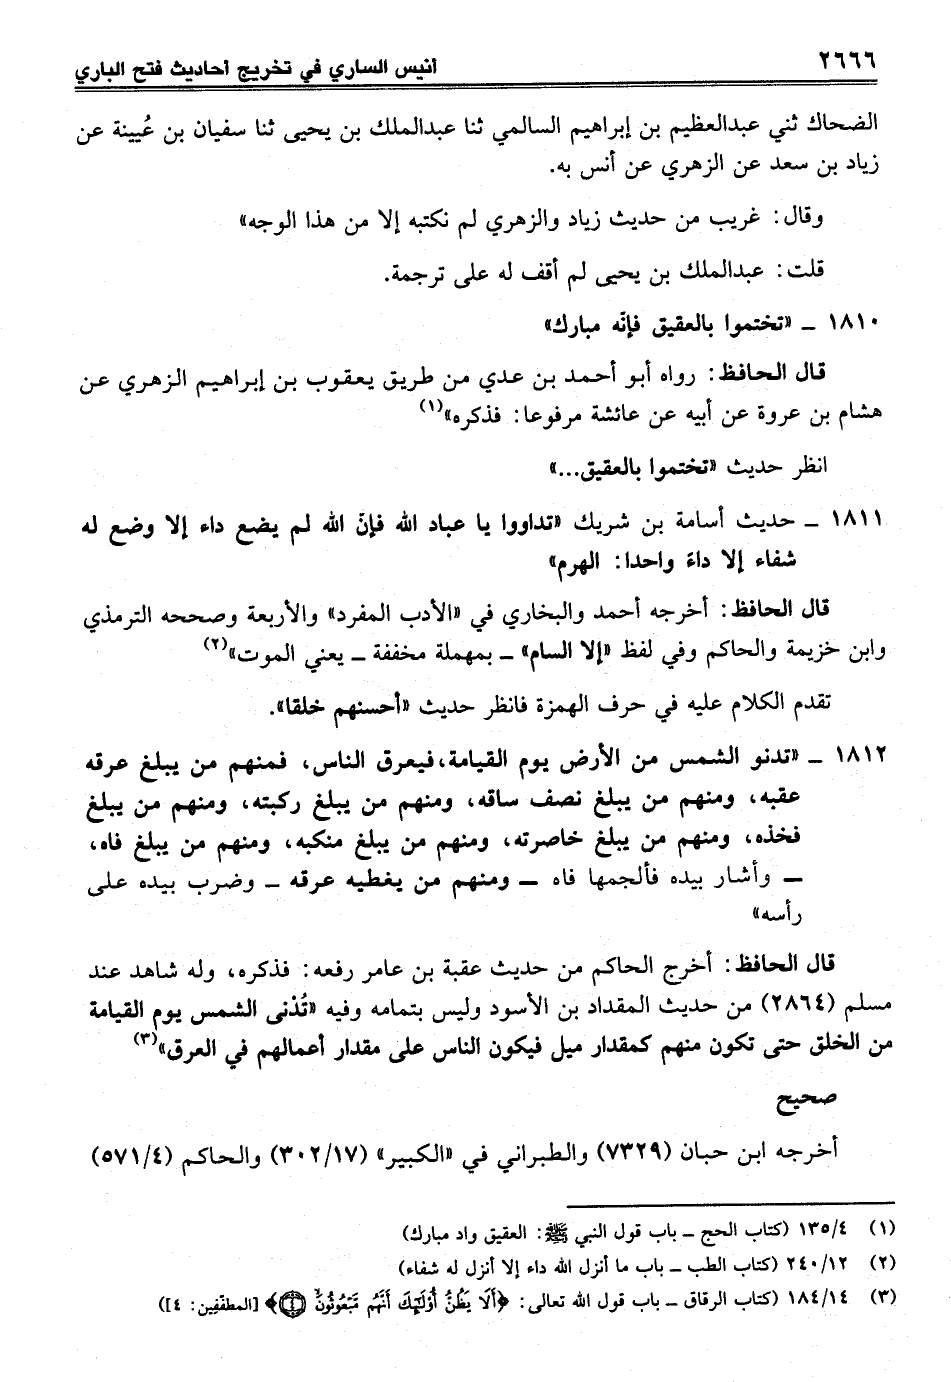 ٢٦٦٦
أنيس الساري في تخريج أحاديث فتح الباري
الضحاك ثني عبدالعظيم بن إبراهيم السالمي ثنا عبدالملك بن يحيى ثنا سفيان بن عُيينة عن
زياد بن سعد عن الزهري عن أنس به.
وقال: غريب من حديث زياد والزهري لم نكتبه إلا من هذا الوجه»
قلت: عبدالملك بن يحيى لم أقف له على ترجمة.
١٨١٠ ـ «تختموا بالعقيق فإنّه مبارك»
قال الحافظ: رواه أبو أحمد بن عدي من طريق يعقوب بن إبراهيم الزهري عن
هشام بن عروة عن أبيه عن عائشة مرفوعا: فذكره»(١)
انظر حديث «تختموا بالعقيق...»
١٨١١ ـ حديث أسامة بن شريك «تداووا يا عباد الله فإنّ الله لم يضع داء إلا وضع له
شفاء إلا داءً واحدا: الهرم»
قال الحافظ: أخرجه أحمد والبخاري في «الأدب المفرد» والأربعة وصححه الترمذي
وابن خزيمة والحاكم وفي لفظ «إلا السام» ـ بمهملة مخففة ـ يعني الموت»(٢)
تقدم الكلام عليه في حرف الهمزة فانظر حديث «أحسنهم خلقا».
١٨١٢ ـ «تدنو الشمس من الأرض يوم القيامة، فيعرق الناس، فمنهم من يبلغ عرقه
عقبه، ومنهم من يبلغ نصف ساقه، ومنهم من يبلغ ركبته، ومنهم من يبلغ
فخذه، ومنهم من يبلغ خاصرته، ومنهم من يبلغ منكبه، ومنهم من يبلغ فاه،
ـ وأشار بيده فألجمها فاه ـ ومنهم من يغطيه عرقه ـ وضرب بيده على
رأسه»
قال الحافظ: أخرج الحاكم من حديث عقبة بن عامر رفعه: فذكره، وله شاهد عند
مسلم (٢٨٦٤) من حديث المقداد بن الأسود وليس بتمامه وفيه «تُدْنى الشمس يوم القيامة
من الخلق حتى تكون منهم كمقدار ميل فيكون الناس على مقدار أعمالهم في العرق»(٣)
صحيح
أخرجه ابن حبان (٧٣٢٩) والطبراني في «الكبير» (٣٠٢/١٧) والحاكم (٥٧١/٤)
(١) ١٣٥/٤ (كتاب الحج ـ باب قول النبي ﷺ: العقيق واد مبارك)
(٢) ٢٤٠/١٢ (كتاب الطب ـ باب ما أنزل الله داء إلا أنزل له شفاء)
(٣) ١٨٤/١٤ (كتاب الرقاق ـ باب قول الله تعالى: ﴿أَلَا يَظُنُّ أُوْلَٰٓئِكَ أَنَّهُم مَّبْعُوثُونَ ٤﴾ [المطفّفِين: ٤])